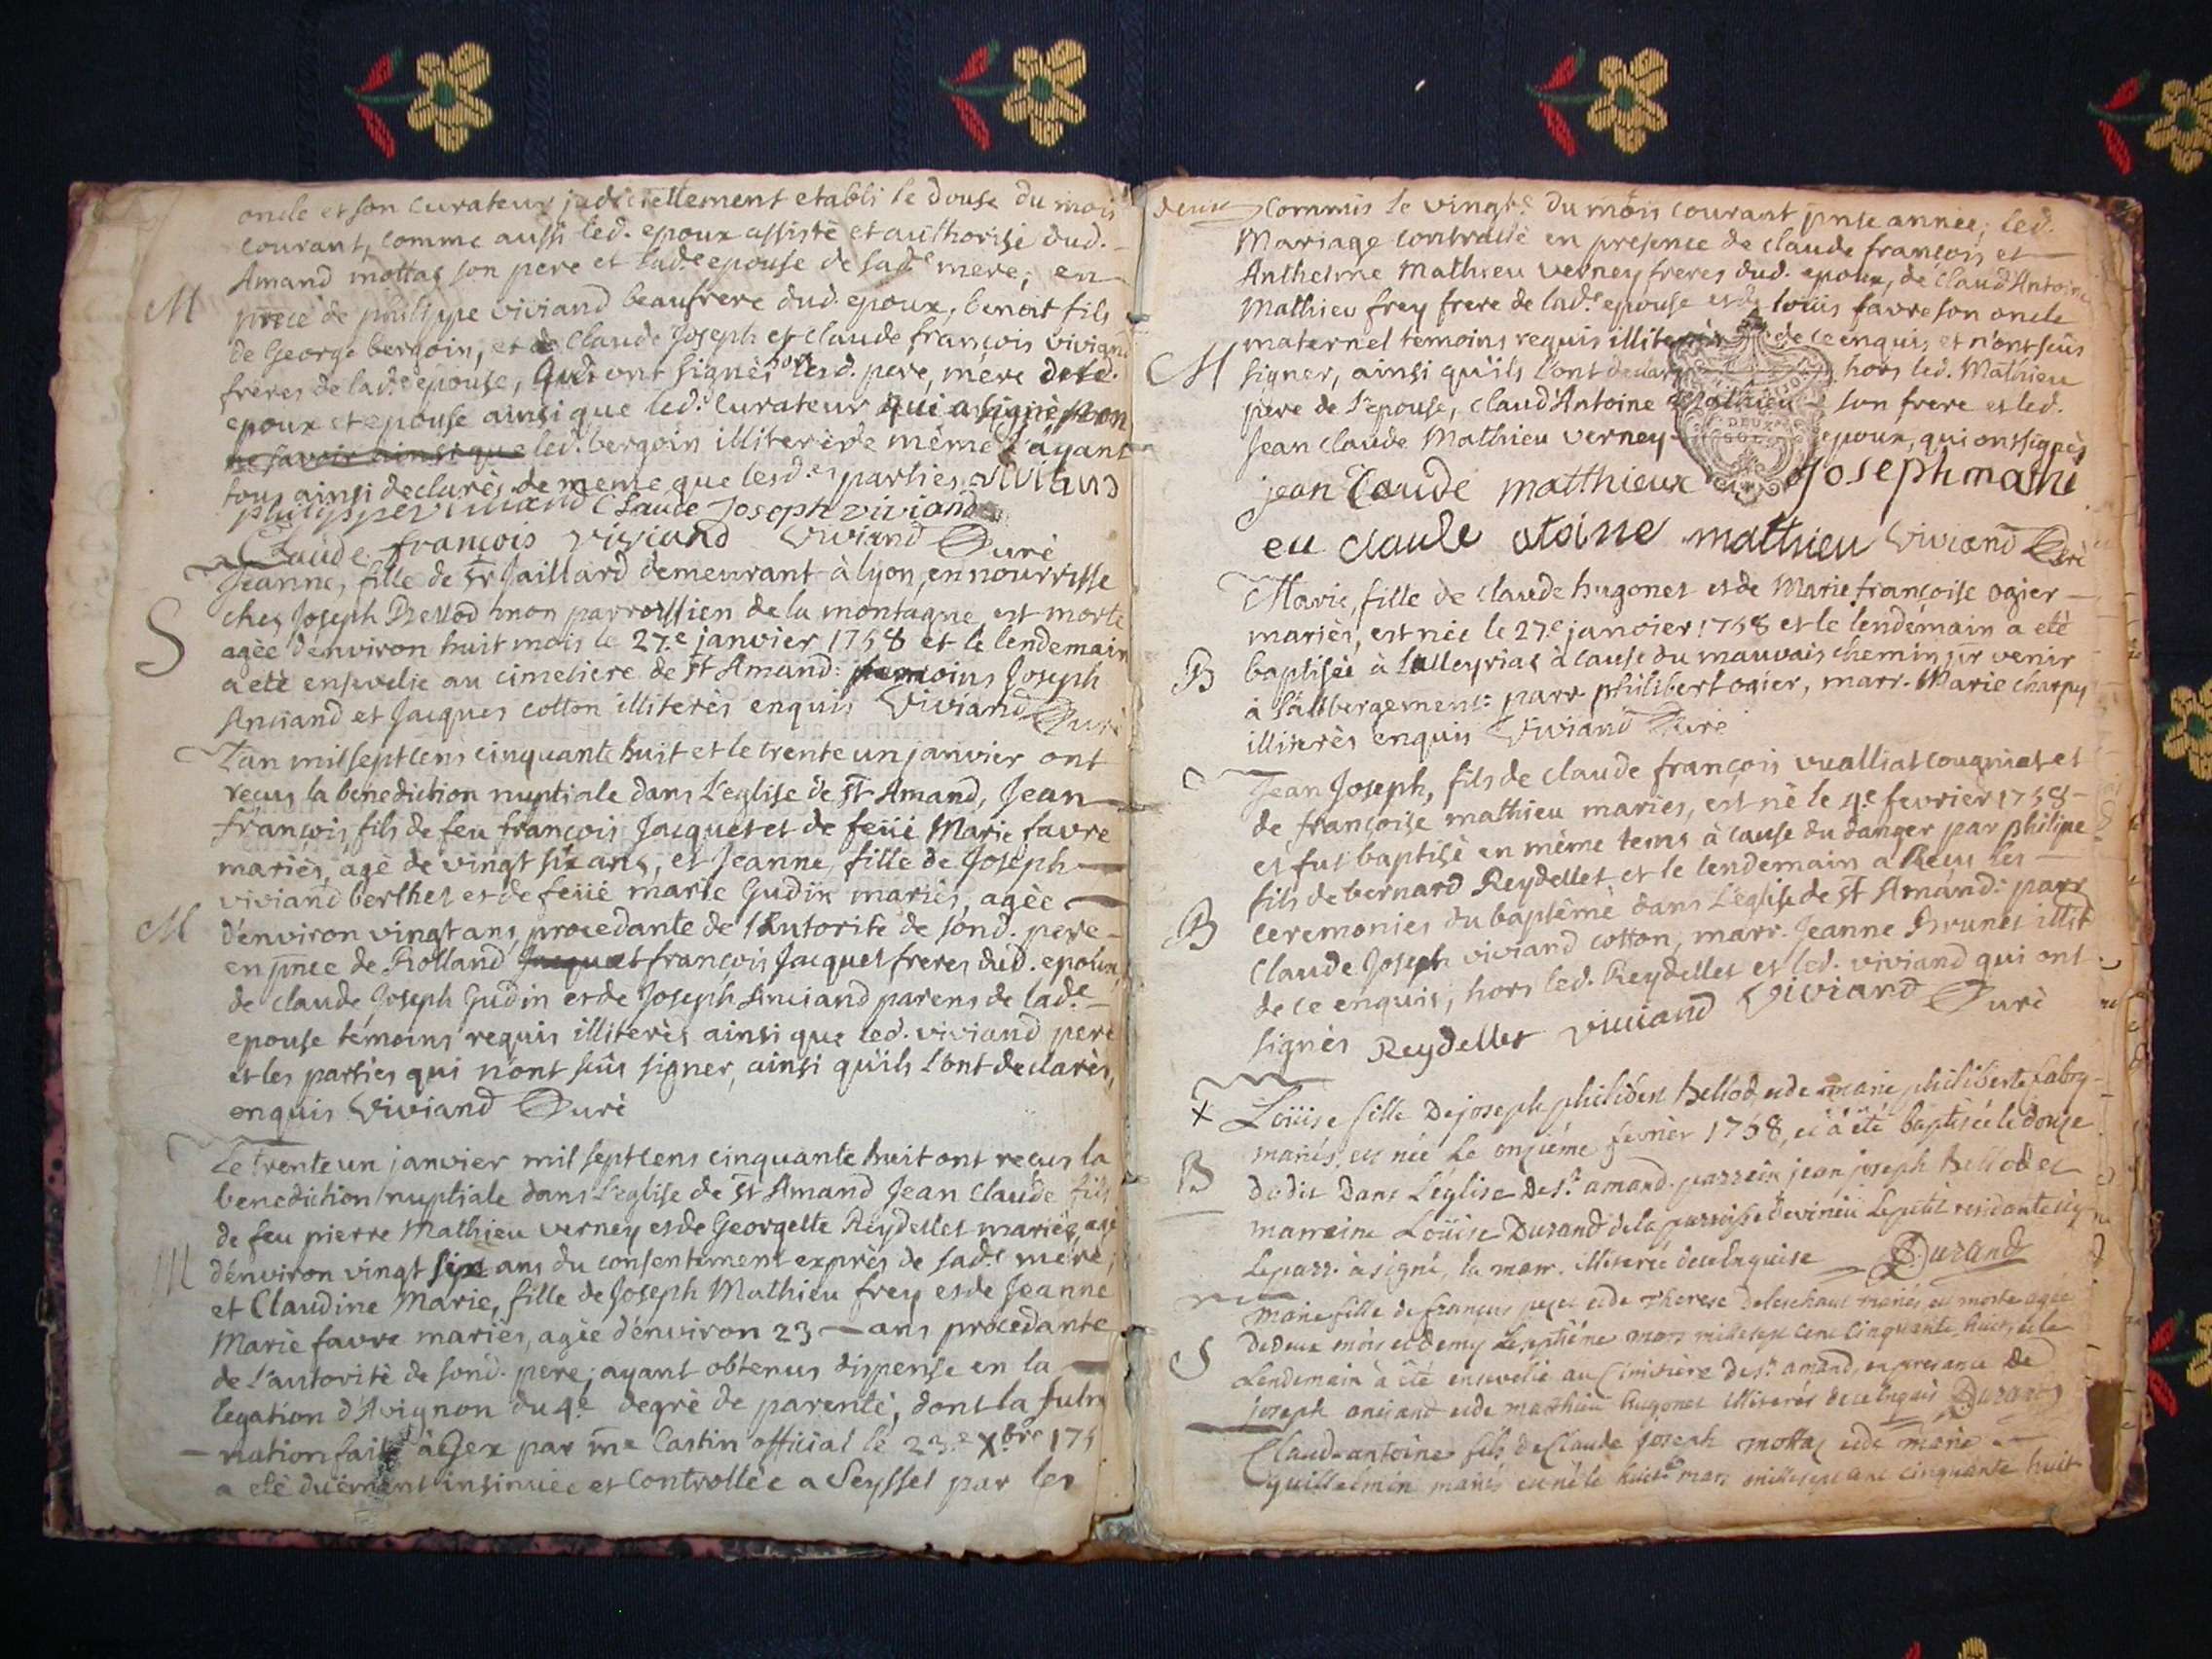 oncle et son curateur judiciellement etabli le douse du mois
courant, comme aussi led. epoux assistè et authorisè dud.
Amand mottas son pere et lad.e epouse de sad.e mere; en
M
pnce de philippe viviand beaufrere dud. epoux, benoit fils
de George bergoin, et de Claude Joseph et Claude françois viviand
freres de lad.e epouse, qui ont signès hors lesd. pere, mère desd.
epoux et epouse ainsi que led. curateur qui a signè non
ne savoir ainsi que led. bergoin illiterè de même l'ayant
tous ainsi declarès de meme que lesd.es parties viviand
philippe viviand Claude Joseph viviand
Claude françois viviand Viviand Curè
Jeanne, fille de Sr Jaillard demeurant à lyon, en nourrisse
ches Joseph Bellod mon parroissien de la montagne est morte
S
agèe d'environ huit mois le 27.e janvier 1758 et le lendemain
a etè ensevelie au cimetiere de St Amand: temoins Joseph
Anciand et Jacques cotton illiterès enquis Viviand Curè
L'an mil sept cens cinquante huit et le trente un janvier ont
reçus la benediction nuptiale dans l'eglise de St Amand, Jean
françois, fils de feu françois Jacquet et de feüe Marie favre
mariès, agè de vingt six ans, et Jeanne, fille de Joseph
viviand berthet et de feüe marie Gudin mariès, agèe
M
d'environ vingt ans, procedante de l'autorite de sond. pere
en pnce de Rolland Jacquet françois Jacquet freres dud. epoux
de claude Joseph Gudin et de Joseph Anciand parens de lad.e
epouse temoins requis illiterès ainsi que led. viviand pere
et les parties qui n'ont sçûs signer, ainsi qu'ils l'ont declarès,
enquis Viviand Curè
Le trente un janvier mil sept cens cinquante huit ont reçus la
benediction nuptiale dans l'eglise de St Amand Jean Claude fils
de feu pierre Mathieu verney et de Georgette Reydellet mariès, agè
M
d'environ vingt six ans du consentement exprès de sad.e mere;
et Claudine Marie, fille de Joseph Mathieu frey et de Jeanne
Marie favre mariès, agèe d'environ 23 ans procedante
de l'autoritè de sond. pere; ayant obtenus dispense en la
legation d'Avignon du 4.e degrè de parentè, dont la fulm
nation faite à Gex par me Castin official le 23.e Xbre 175
a etè düement insinuèe et controllèe a Seyssel par les
deux commis le vingt.e du mois courant pnse annèe; led.
Mariage contractè en presence de claude françois et
Anthelme Mathieu verney freres dud. epoux, de Claud'Antoine
Mathieu frey frere de lad.e epouse et de loüis favre son oncle
maternel temoins requis illiterès de ce enquis et n'ont sçûs
M
signer, ainsi qu'ils l'ont declarè hors led. Mathieu
pere de l'epouse, claud'Antoine Mathieu son frere et led.
DEUX SOLS
Jean Claude Mathieu verney epoux, qui ont signès
jean Claude matthieux Joseph mathi
eu claule atoine mathieu Viviand Curè
Marie, fille de claude hugonet et de Marie françoise ogier
mariès, est nèe le 27.e janvier 1758 et le lendemain a etè
B
baptisèe à Lalleyriat à cause du mauvais chemin pr venir
à l'Abbergement: parr philibert ogier, marr. Marie charpy
illiterès enquis Viviand Curè
Jean Joseph, fils de claude françois vualliat cougniat et
de françoise mathieu mariès, est nè le 4.e fevrier 1758
et fut baptisè en même tems à cause du danger par philipe
fils de bernard Reydellet et le lendemain a Reçu les
B
ceremonies du baptême dans l'eglise de St Amand: parr
Claude Joseph viviand cotton, marr. Jeanne Brunet illit
de ce enquis, hors led. Reydellet et led. viviand qui ont
signès Reydellet viviand Viviand Curè
X Loüise fille de joseph philibert bellod et de marie philiberte
mariés est née le onziéme fevrier 1758, et à été baptisée le douze
B
dudit dans l'église de St. amand. parrein jean joseph bellod et
marreine Loüise Durand de la parroisse de virieu le petit residante icy
le parr. à signé, la marr. illiteré de ce enquise Durand
Marie fille de françois et de Therese mariés est morte agée
S
de deux mois et demy le septiéme mars mille sept cent cinquante huit, et le
Lendemain à été ensevelie au Cimitière de St. amand, en presance de
joseph anciand et de mathieu hugonet illiterés de ce enquis Durand
Claude antoine fils de Claude joseph mottas et de marie
guillelmin mariés est né le huit.e mars mille sept cent cinquante huit